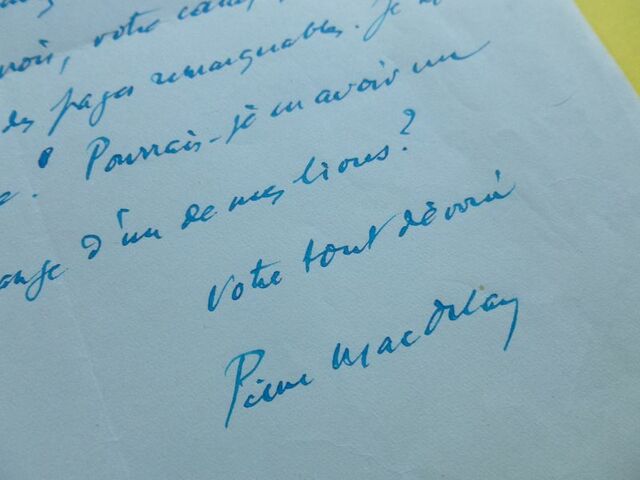 votre
des pages remarquables. Je
? Pourrais-je en avoir un
ange d'un de mes lions?
Votre tout dévoué
Pierre Mac Orlan